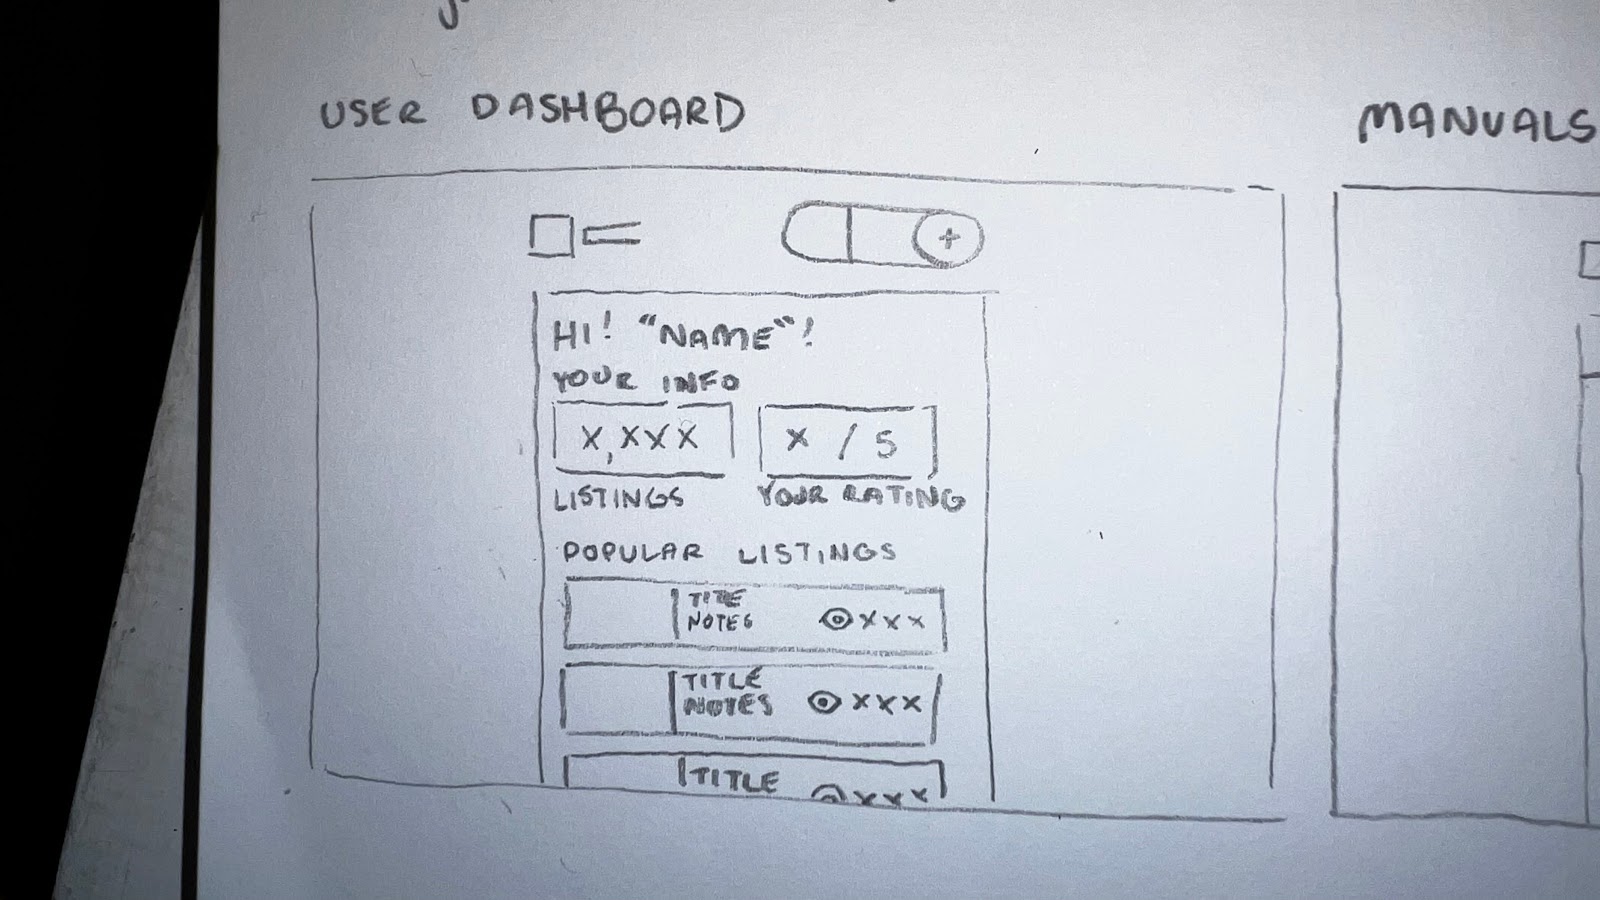 USER DASHBOARD
MANUALS
+
HI! "NAME"!
YOUR INFO
X,XXX
X / 5
LISTINGS
YOUR RATING
POPULAR LISTINGS
TITLE
NOTES
XXX
TITLE
NOTES
XXX
TITLE
XXX